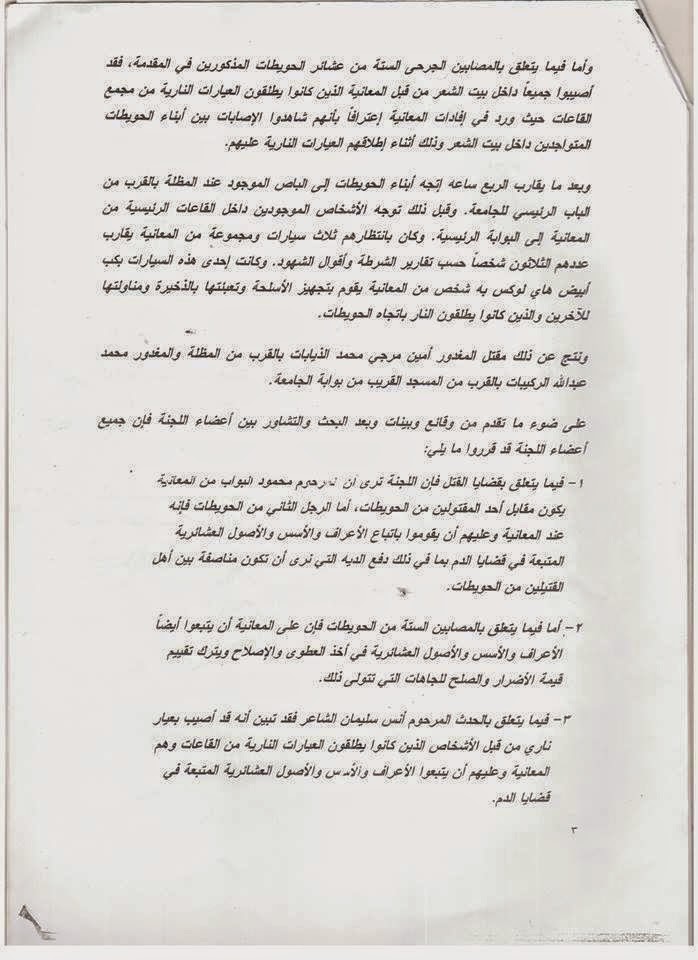 وأما فيما يتعلق بالمصابين الجرحى الستة من عشائر الحويطات المذكورين في المقدمة، فقد
أصيبوا جميعاً داخل بيت الشعر من قبل المعانية الذين كانوا يطلقون العيارات النارية من مجمع
القاعات حيث ورد في إفادات المعانية إعترافاً بأنهم شاهدوا الإصابات بين أبناء الحويطات
المتواجدين داخل بيت الشعر وذلك أثناء إطلاقهم العيارات النارية عليهم.
وبعد ما يقارب الربع ساعه إتجه أبناء الحويطات إلى الباص الموجود عند المظلة بالقرب من
الباب الرئيسي للجامعة. وقبل ذلك توجه الأشخاص الموجودين داخل القاعات الرئيسية من
المعانية إلى البوابة الرئيسية. وكان بانتظارهم ثلاث سيارات ومجموعة من المعانية يقارب
عددهم الثلاثون شخصاً حسب تقارير الشرطة وأقوال الشهود. وكانت إحدى هذه السيارات بكب
أبيض هاي لوكس به شخص من المعانية يقوم بتجهيز الأسلحة وتعبئتها بالذخيرة ومناولتها
للآخرين والذين كانوا يطلقون النار باتجاه الحويطات.
ونتج عن ذلك مقتل المغدور أمين مرجي محمد الذيابات بالقرب من المظلة والمغدور محمد
عبدالله الركيبات بالقرب من المسجد القريب من بوابة الجامعة.
على ضوء ما تقدم من وقائع وبينات وبعد البحث والتشاور بين أعضاء اللجنة فإن جميع
أعضاء اللجنة قد قرروا ما يلي:
١- فيما يتعلق بقضايا القتل فإن اللجنة ترى أن المرحوم محمود البواب من المعانية
يكون مقابل أحد المقتولين من الحويطات، أما الرجل الثاني من الحويطات فإنه
عند المعانية وعليهم أن يقوموا باتباع الأعراف والأسس والأصول العشائرية
المتبعة في قضايا الدم بما في ذلك دفع الديه التي نرى أن تكون مناصفة بين أهل
القتيلين من الحويطات.
٢- أما فيما يتعلق بالمصابين الستة من الحويطات فإن على المعانية أن يتبعوا أيضاً
الأعراف والأسس والأصول العشائرية في أخذ العطوى والإصلاح ويترك تقييم
قيمة الأضرار والصلح للجاهات التي تتولى ذلك.
٣- فيما يتعلق بالحدث المرحوم أنس سليمان الشاعر فقد تبين أنه قد أصيب بعيار
ناري من قبل الأشخاص الذين كانوا يطلقون العيارات النارية من القاعات وهم
المعانية وعليهم أن يتبعوا الأعراف والأسس والأصول العشائرية المتبعة في
قضايا الدم.
٣